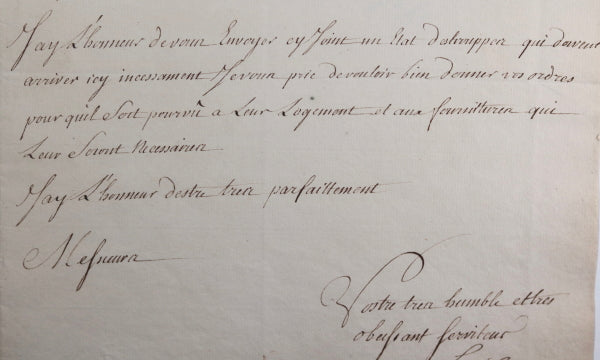 Jay L'honneur devous Envoyer cy Joint un Etat destrouppes qui doivent
arriver icy incessament Jevous prie devouloir bien donner vos ordres
pour quil Soit pourvû a Leur Logement et aux fournitures qui
Leur Seront Necessaires
Jay L'honneur destre tres parfaittement
Messieurs
Vostre tres humble et tres
obeissant serviteur